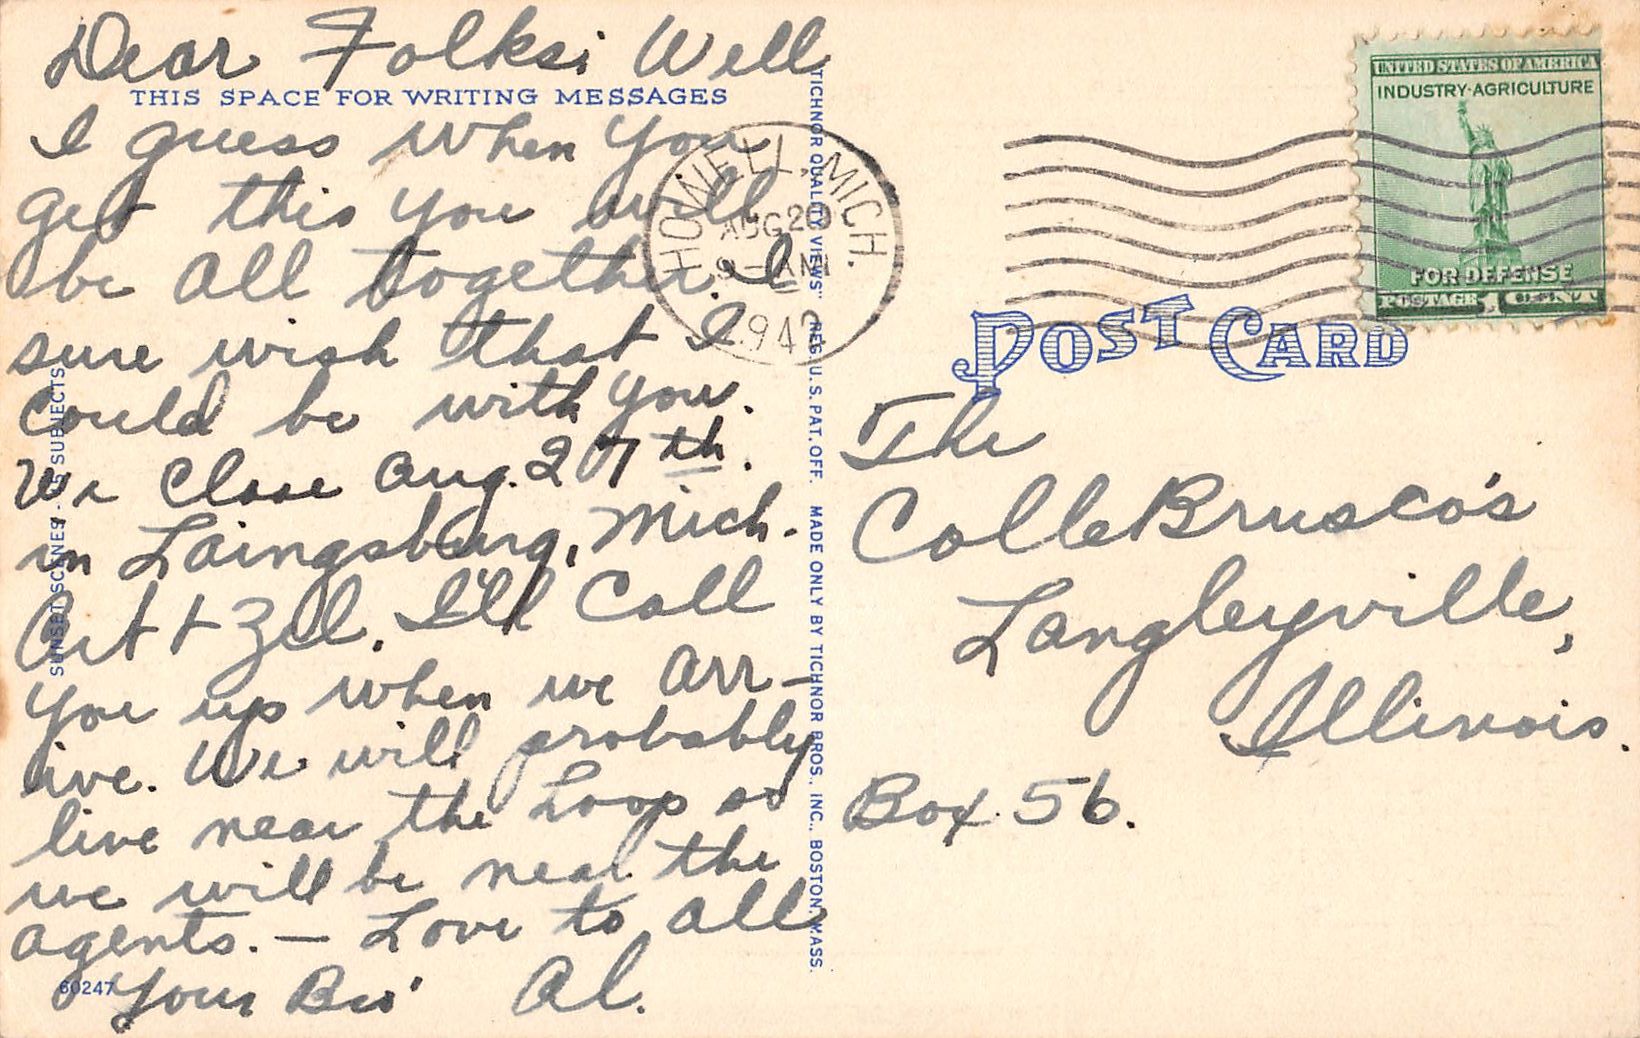 Dear Folks; Well
THIS SPACE FOR WRITING MESSAGES
I guess when you
get this you will
be all together. I
sure wish that I
could be with you.
We close Aug. 27th.
in Laingsburg, Mich.
Art + Zel. I'll call
you up when we arr-
ive. We will probably
live near the Loop so
we will be near the
agents. — Love to all
Your Bro' Al.
60247
SUNSET SCENES - SUBJECTS
TICHNOR QUALITY VIEWS" REG. U. S. PAT. OFF. MADE ONLY BY TICHNOR BROS., INC., BOSTON, MASS.
HOWELL, MICH.
AUG 20
9 - AM
194
UNITED STATES OF AMERICA
INDUSTRY·AGRICULTURE
FOR DEFENSE
POSTAGE 1 CENT
POST CARD
The
ColleBrusco's
Langleyville,
Illinois.
Box 56.